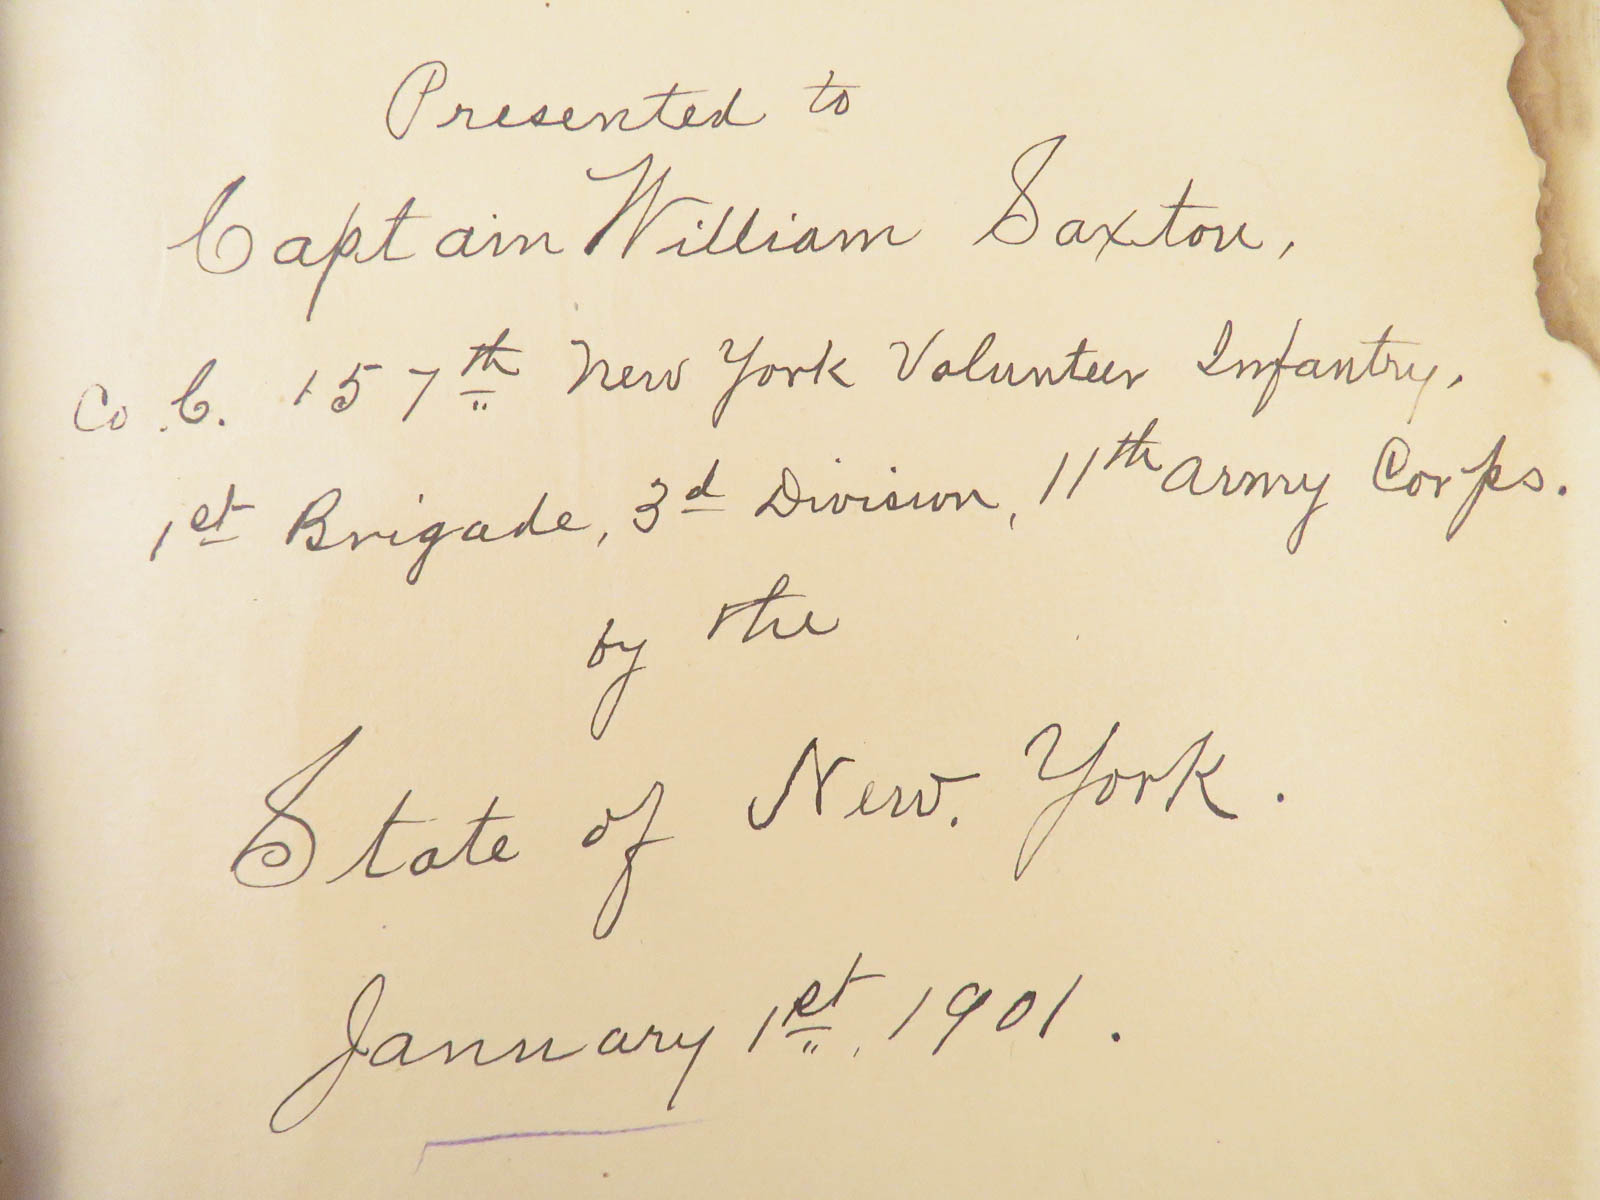 Presented to
Captain William Saxton,
Co. C. 157th New York Volunteer Infantry,
1st Brigade, 3d Division, 11th Army Corps.
by the
State of New. York.
January 1st, 1901.